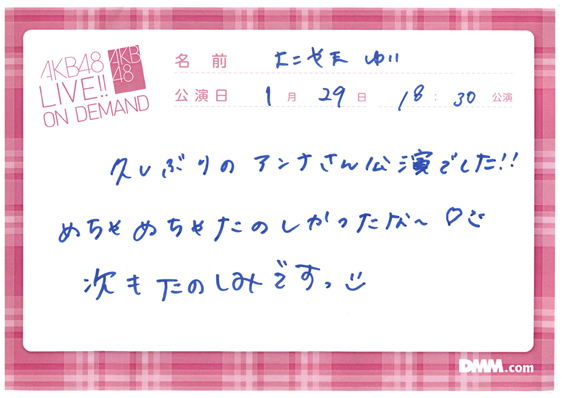 AKB48
LIVE!!
ON DEMAND
AKB
48
名前 よこやま ゆい
公演日 1月29日 18:30 公演
久しぶりの アンナさん公演でした!!
めちゃめちゃたのしかったな〜♡
次もたのしみですっ
DMM.com